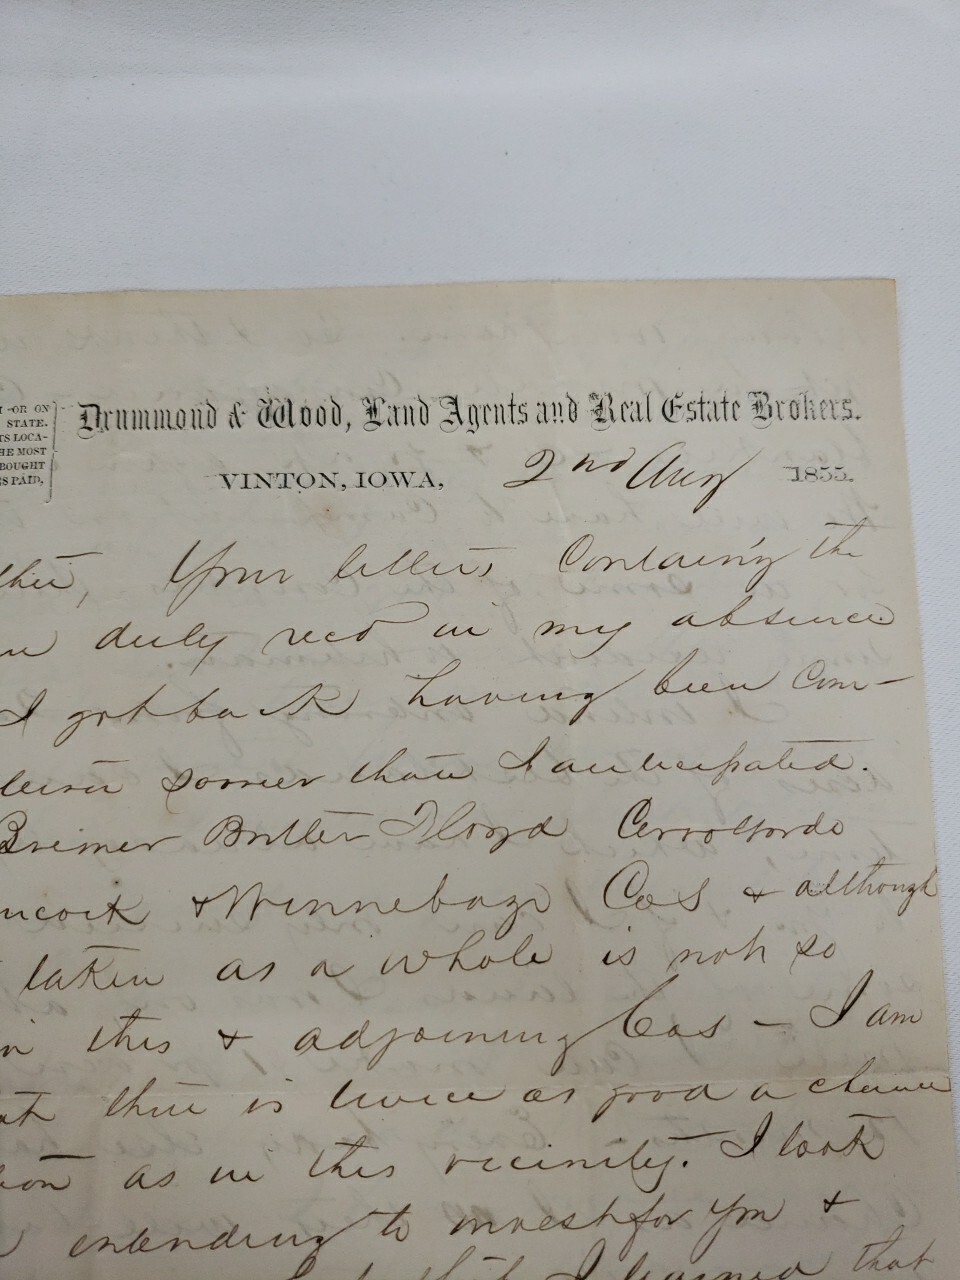 -OR ON
STATE.
TS LOCA-
HE MOST
BOUGHT
S PAID,
Drummond & Wood, Land Agents and Real Estate Brokers.
VINTON, IOWA, 2nd Aug 1855.
Your letters Containing the
duly recd in my absence
I got back having been Com-
sooner than I anticipated.
Bremer Butler Floyd Cerrogordo
ncock & Winnebago Cos & although
taken as a whole is not so
in this & adjoining Cos – I am
there is twice as good a chance
as in this vicinity. I took
intending to invest for you &
I learned that